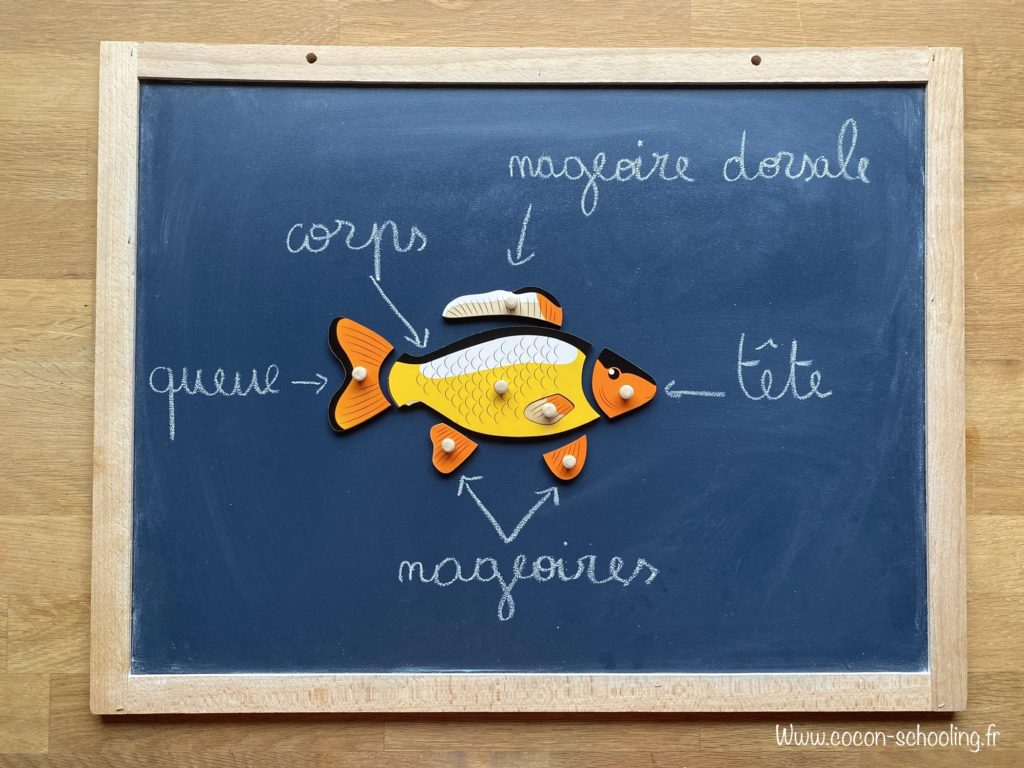 nageoire dorsale
corps
queue
tête
nageoires
Www.cocon-schooling.fr